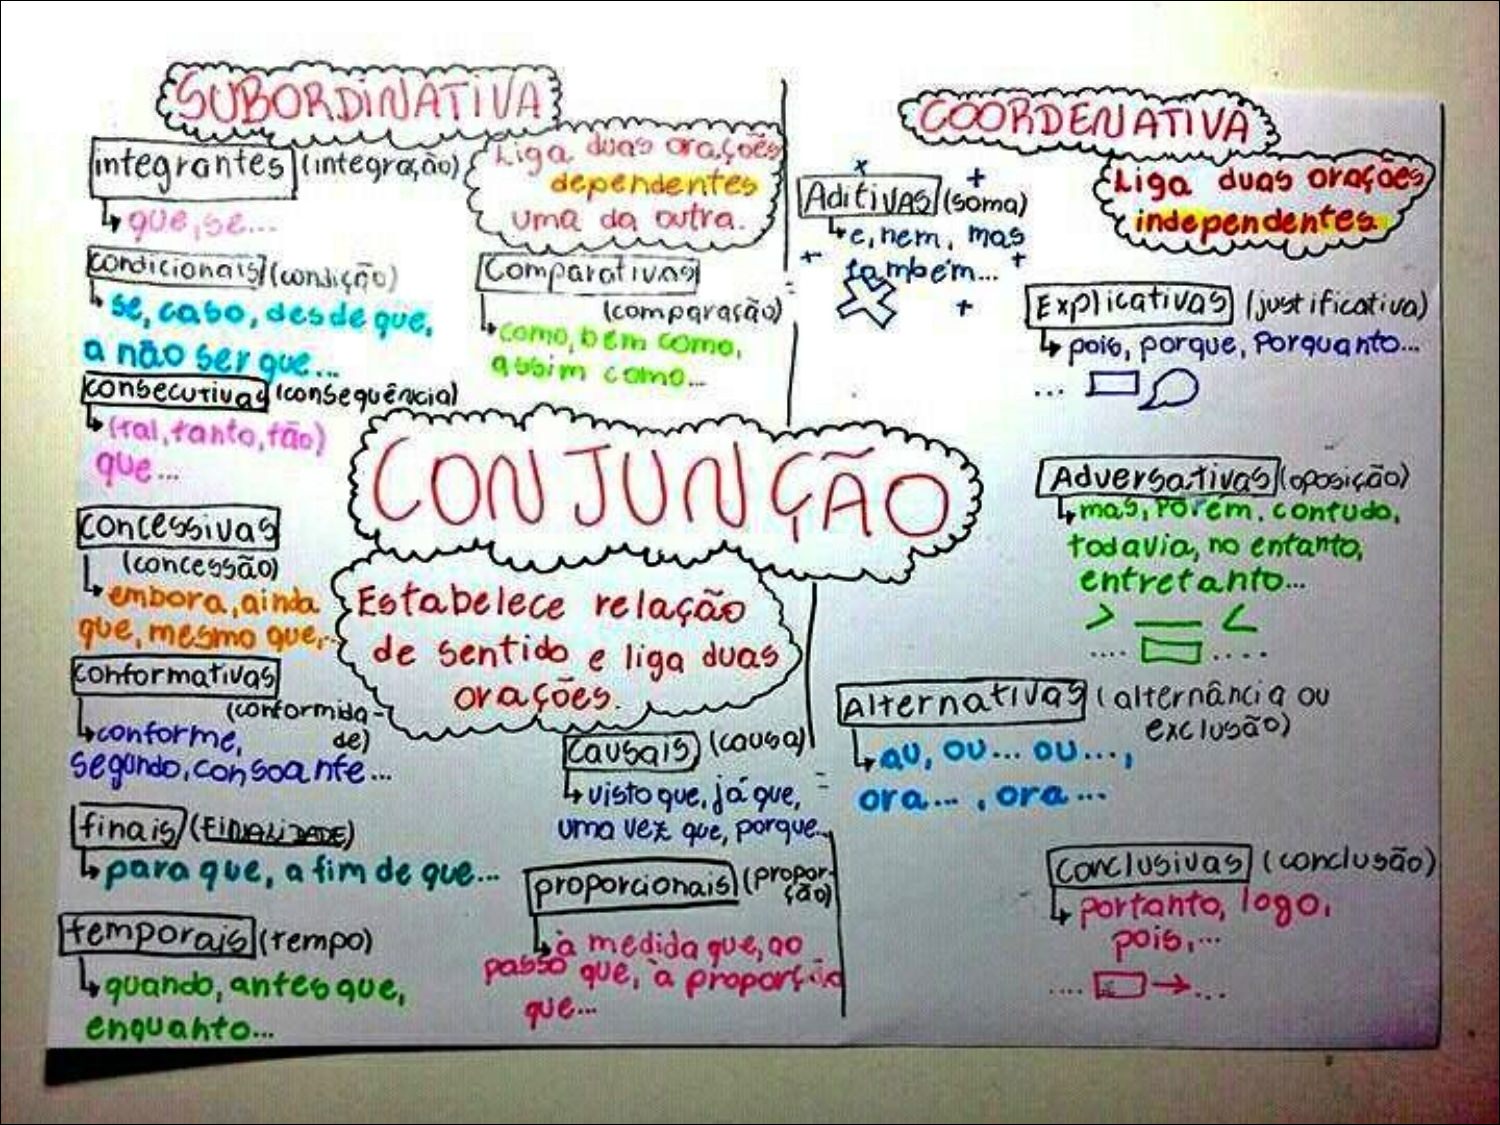 SUBORDINATIVA
Liga duas orações
dependentes
uma da outra.
integrantes (integração)
que, se...
condicionais (condição)
se, caso, desde que,
a não ser que...
consecutivas (consequência)
(tal, tanto, tão)
que...
concessivas
(concessão)
embora, ainda
que, mesmo que,...
conformativas
(conformida-
de)
conforme,
segundo, consoante...
finais (FINALIDADE)
para que, a fim de que...
temporais (tempo)
quando, antes que,
enquanto...
Comparativas
(comparação)
como, bem como,
assim como...
CONJUNÇÃO
Estabelece relação
de sentido e liga duas
orações.
causais (causa)
visto que, já que,
uma vez que, porque...
proporcionais (propor-
ção)
à medida que, ao
passo que, à proporção
que...
COORDENATIVA
Liga duas orações
independentes.
Aditivas (soma)
e, nem, mas
também...
Explicativas (justificativa)
pois, porque, Porquanto...
...
Adversativas (oposição)
mas, Porém, contudo,
todavia, no entanto,
entretanto...
> — <
.... ....
Alternativas (alternância ou
exclusão)
ou, ou... ou...,
ora... , ora...
Conclusivas (conclusão)
portanto, logo,
pois,...
.... → ...